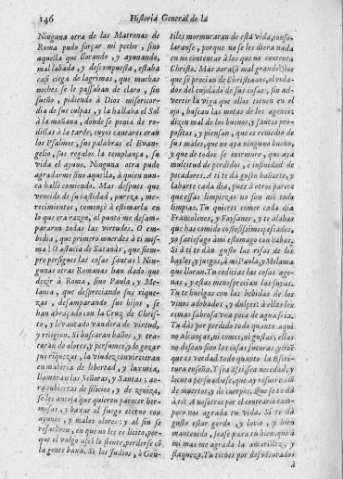 146 Historia General de la
Ninguna otra de las Matronas de
Roma pudo forçar mi pecho, sino
aquella que llorando, y ayunando,
mal labada, y descompuesta, estaba
casi ciega de lagrimas, que muchas
noches se le passaban de claro, sin
sueño, pidiendo à Dios misericor-
dia de sus culpas, y la hallaba el Sol
à la mañana, donde se ponia de ro-
dillas à la tarde, cuyos cantares eran
los Psalmos, sus palabras el Evan-
gelio, sus regalos la templança, su
vida el ayuno. Ninguna otra pudo
agradarme sino aquella, à quien nun-
ca hallè comiendo. Mas despues que
vencido de su castidad, pureza, me-
recimientos, començè à estimarla en
lo que era razon, al punto me desam-
pararon todas las virtudes. O em-
bidia, que primero muerdes à ti mis-
ma! O astucia de Satanàs, que siem-
pre persigues las cosas santas! Nin-
gunas otras Romanas han dado que
dezir à Roma, sino Paula, y Me-
lania, que despreciando sus rique-
zas, desamparando sus hijos, se
han abraçado con la Cruz de Chris-
to, y levantado vandera de virtud,
y religion. Si buscaran baños, y
de olores, y perfumes,
sus riquezas, la viudez convirtieran
en materia de libertad, y luxuria,
llamaranlas Señoras, y Santas; ao-
ra cubiertas de silicio, y de zeniza,
se les antoja que quieren parecer her-
mosas, y baxar al fuego eterno con
ayunos, y malos olores: y al fin se
que no les es licito,
que el vulgo perderse cō
la gente baxa. Si los Iudios, ò Gen-
tiles murmuraran de esta vida, conso-
laranse, porque no se les diera nada
en no contentar à los que no contenta
Christo. Mas aora (ò mal grande!) los
que se precian de Christianos, olvida-
dos del cuydado de sus cosas, sin ad-
vertir la viga que ellos tienen en el
ojo, buscan las motas de los agenos:
dizen mal de los buenos, y santos pro-
positos, y piensan, que es remedio de
sus males, que no aya ninguno bueno,
y que de todos se murmure, que aya
multitud de perdidos, è infinidad de
pecadores. A ti te dà gusto bañarte, y
labarte cada dia, pues à otros parece
que essas limpiezas no son mas
limpias. Tu quieres comer cada dia
Francolines, y Faysanes, y te alabas
que has comido costosissimos pescados,
yo satisfago mi estomago con habas.
Si à ti te dàn gusto las risas de los
bayles, y juegos, à mi Paula, y Melania
que lloran. Tu codicias las cosas age-
nas, y estas menosprecian las suyas.
Tu te huelgas con las bebidas de los
vinos adobados, y dulces: à ellas les
sabrosa una poca de agua fria.
Tu dàs por perdido todo quanto aqui
no alcanças, ni comes, ni gustas, ellas
no dessean sino las cosas futuras,
que es verdad todo quanto la Escri-
tura enseña. T sea assi essa necedad, y
locura persuadirse, que ay resurrecciō
de muertos, y de cuerpos. Què te
à ti? A nosotros por el contrario tam-
poco nos agrada tu vida. Si te dà
gusto estar gordo, y lozio, y bien
mantenido, seate para tu bien, que à
mi me agrada la amarillez, y
flaqueza. Tu tienes por desventurados
à